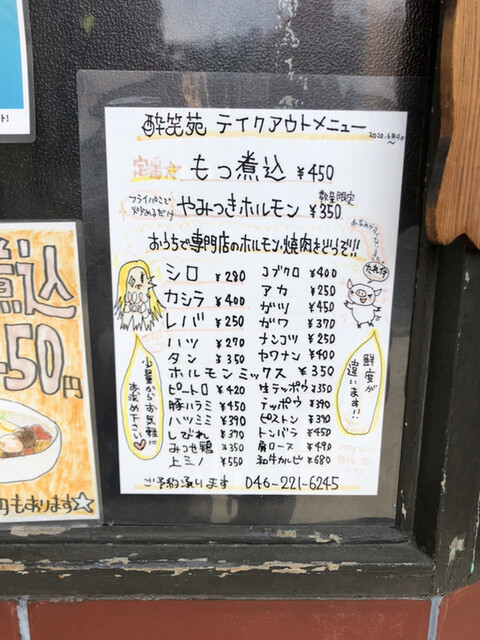 酔笑苑 テイクアウトメニュー
2020.5月9日〜
定番☆ もつ煮込 ¥450
フライパンで
炒めるだけ
数量限定
やみつきホルモン ¥350
おうちで専門店のホルモン・焼肉をどうぞ!!
シロ ¥280 コブクロ ¥400
カシラ ¥400 アカ ¥250
レバ ¥250 ガツ ¥450
ハツ ¥270 ガワ ¥370
タン ¥350 ナンコツ ¥250
ヤワナン ¥400
ホルモンミックス ¥350
ピートロ ¥420 生テッポウ ¥350
豚ハラミ ¥450 テッポウ ¥390
ハツミミ ¥390 ピストン ¥390
しびれ ¥390 トンバラ ¥450
みつせ鶏 ¥350 肩ロース ¥490
上ミノ ¥550 和牛カルビ ¥680
少量からお気軽に
お求め下さい♡
たれ付
鮮度が
違います!!
ご予約承ります 046-221-6245
煮込
50円
円もあります☆